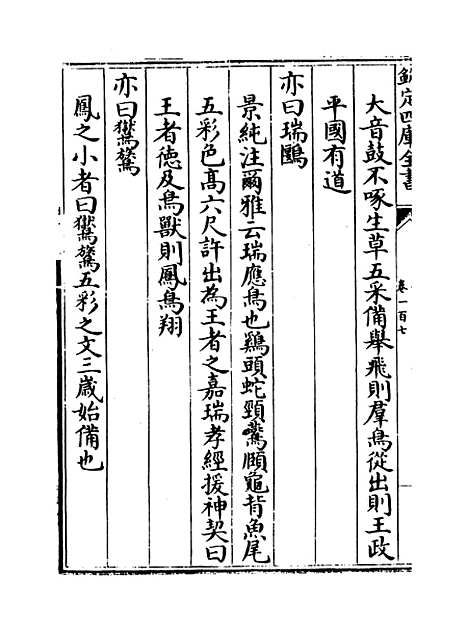 欽定四庫全書
卷一百七
大音鼓不啄生草五采備舉飛則羣鳥從出則王政
平國有道
亦曰瑞鶠
景純注爾雅云瑞應鳥也鷄頭蛇頸鷰頷龜背魚尾
五彩色高六尺許出為王者之嘉瑞孝經援神契曰
王者德及鳥獸則鳳鳥翔
亦曰鸑鷟
鳳之小者曰鸑鷟五彩之文三歲始備也